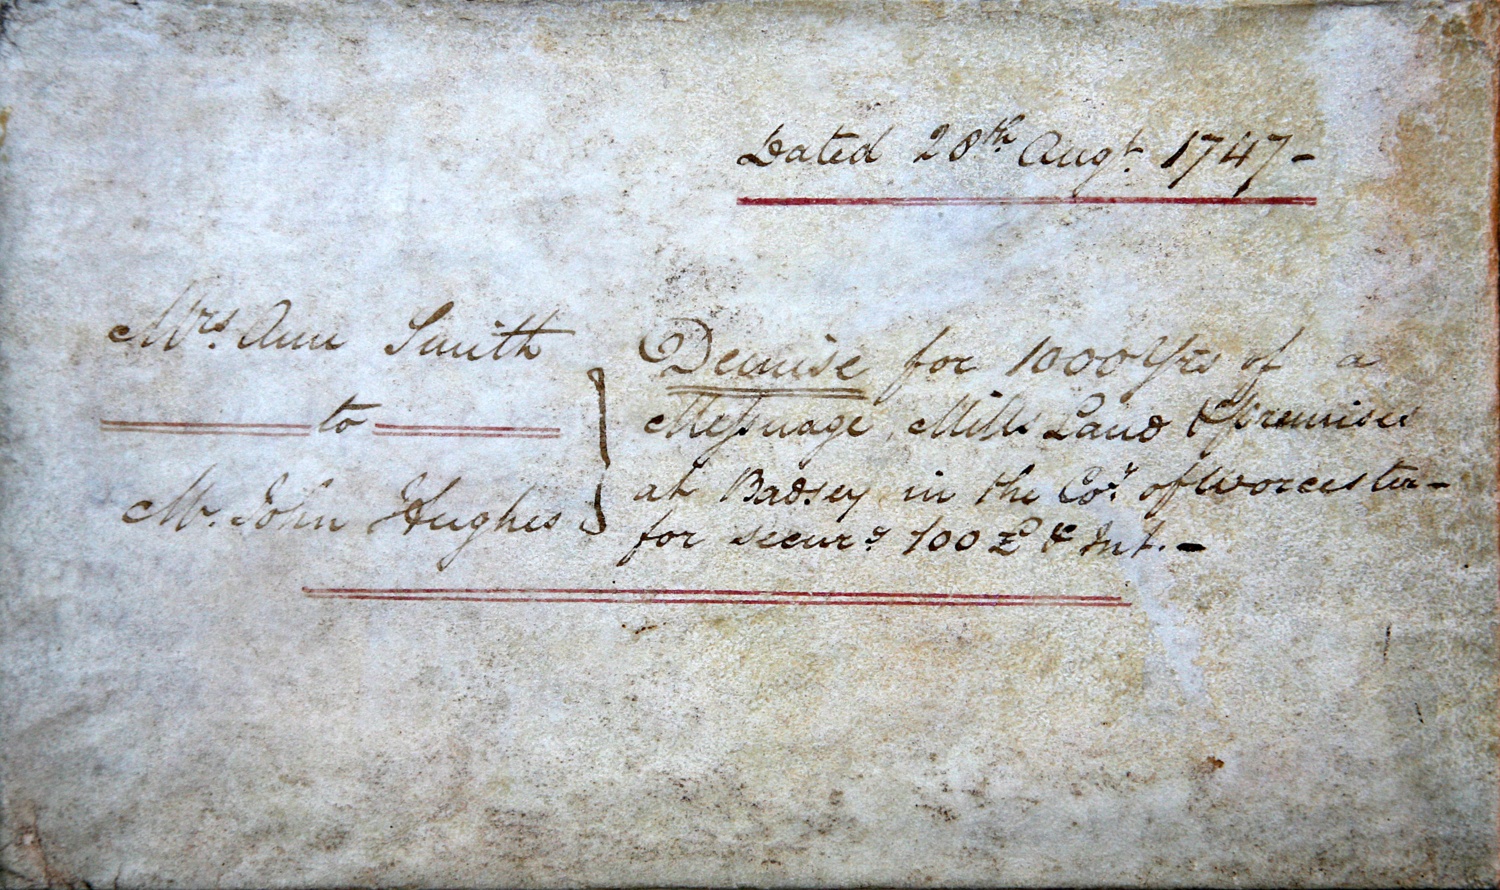 Dated 28th Augt. 1747-
Mrs. Ann Smith
to
Mr. John Hughes
Demise for 1000 Yrs of a
Messuage, Mills Land & premises
at Badsey in the Coy. of Worcester-
for secure. 100£ & Int.-